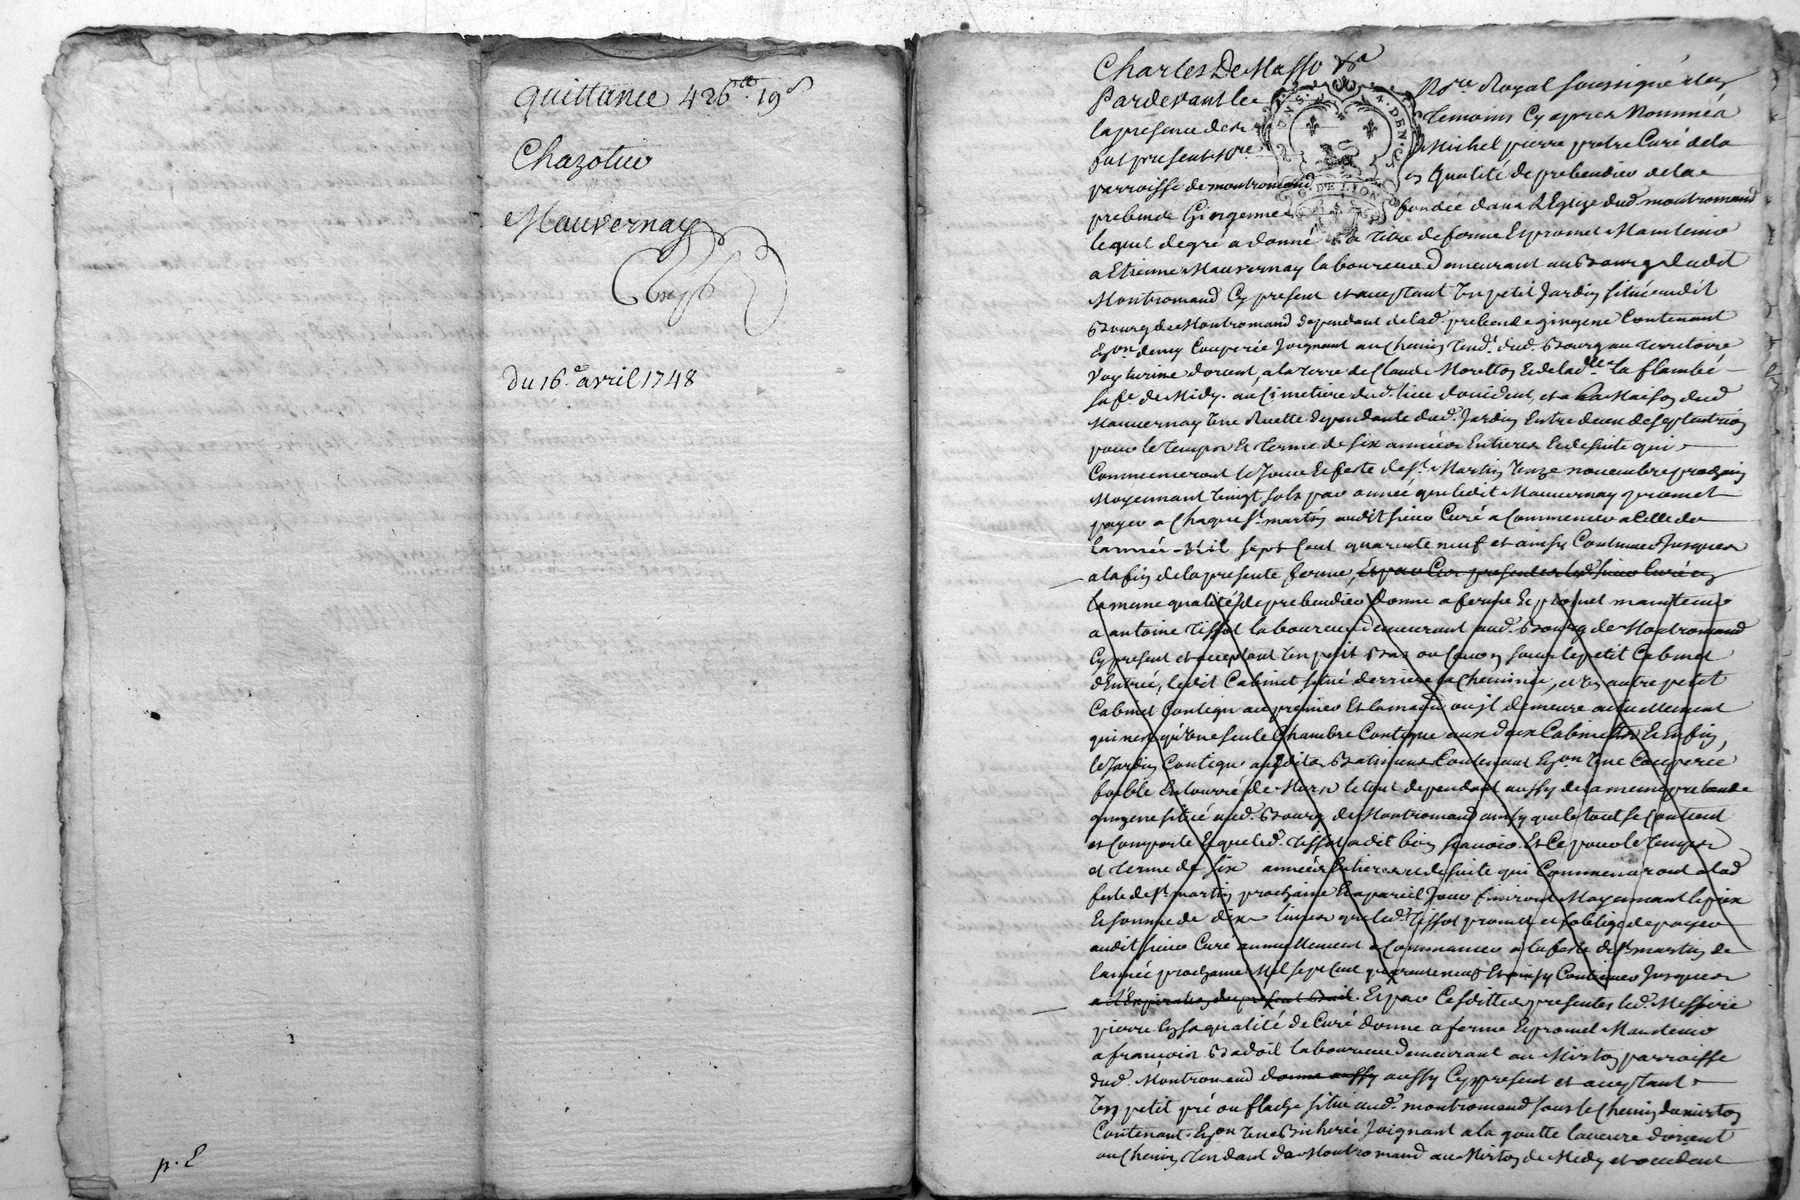 quittance 426ᵗᵗ 19ˢ
Chazottes
Mauvernay
du 16ᵉ avril 1748
p. 2
Charles De Masso
Pardevant le Noʳᵉ Royal soussigné et en
la presence des temoins Cy apres Nommés
fut present Mʳᵉ Michel pierre pretre Curé de la
parroisse de montromand en qualité de prebendier de la
prebende Gingenne fondée dans L'Eglise dud. montromand
lequel de gré a donné a titre de ferme Et promet Maintenir
a Etienne Mauvernay laboureur demeurant au Bourg dudit
Montromand Cy present et acceptant Un petit Jardin situé audit
Bourg de Montromand dependant de lad. prebende gingene Contenant
Eyon demy Couperée Joignant au Chemin tend.ᵗ dud. Bourg au territoire
dorient, a la terre de Claude Moretton Et de lad.ᵉ la flambé
sa fe. de Midy. au Cimetiere dud. lieu doccident, et a la Maison dud
Mauvernay Une Ruette dependante dud. Jardin Entre deux de septentrion
pour le temps et terme de six années Entieres Et de suite qui
Commenceront le Jour Et feste de Sᵗ. Martin Unze novembre prochain
Moyennant Vingt sols par année que ledit Mauvernay promet
payer a Chaque Sᵗ. martin audit sieur Curé a Commencer a Celle de
lannée Mil sept Cent quarente neuf et ainsy Continuer Jusques
a la fin de la presente ferme, Et par Ces presentes led. sieur Curé en
la meme qualité de prebendier donne a ferme Et promet maintenir
a antoine tissot laboureur demeurant aud. Bourg de Montromand
Cy present et acceptant Un petit Bas ou sous le petit Cabinet
d'Entrée, ledit Cabinet situé derriere la Cheminée, et Un autre petit
Cabinet Contegu au premier Et la maison ou jl demeure actuellement
qui n'est qu'Une seule Chambre Contigue aux deux Cabinets Et Enfin,
le Jardin Contigu auxdits Batiments Contenant Eyon Une Couperée
foible Entourré de Murs le tout dependant aussy de la meme prebende
gingene situé aud. Bourg de Montromand ainsy que le tout se Contient
et Comporte Et que led. tissot a dit bien scavoir. Et Ce pour le temps
et terme de six années Entieres et de suite qui Commenceront a lad
feste de Sᵗ martin prochaine Et a pareil Jour finiront Moyennant le prix
Et somme de dix livres que led. tissot promet et soblige de payer
audit sieur Curé annuellement a Commancer a la feste de Sᵗ martin de
lannée prochaine Mil sept Cent quarente neuf Et ainsy Continuer Jusques
a l'Expiration du present Bail. Et par Ces dittes presentes led. Messire
pierre En sa qualité de Curé donne a ferme Et promet Maintenir
a françois Badoil laboureur demeurant au Mirton parroisse
dud. Montromand donne aussy aussy Cy present et acceptant
Un petit pré ou flache situé aud. montromand sous le Chemin du mirton
Contenant Eyon Une Bicherée Joignant a la goutte dorient
au Chemin tendant de Montromand au Mirton de Midy et occident